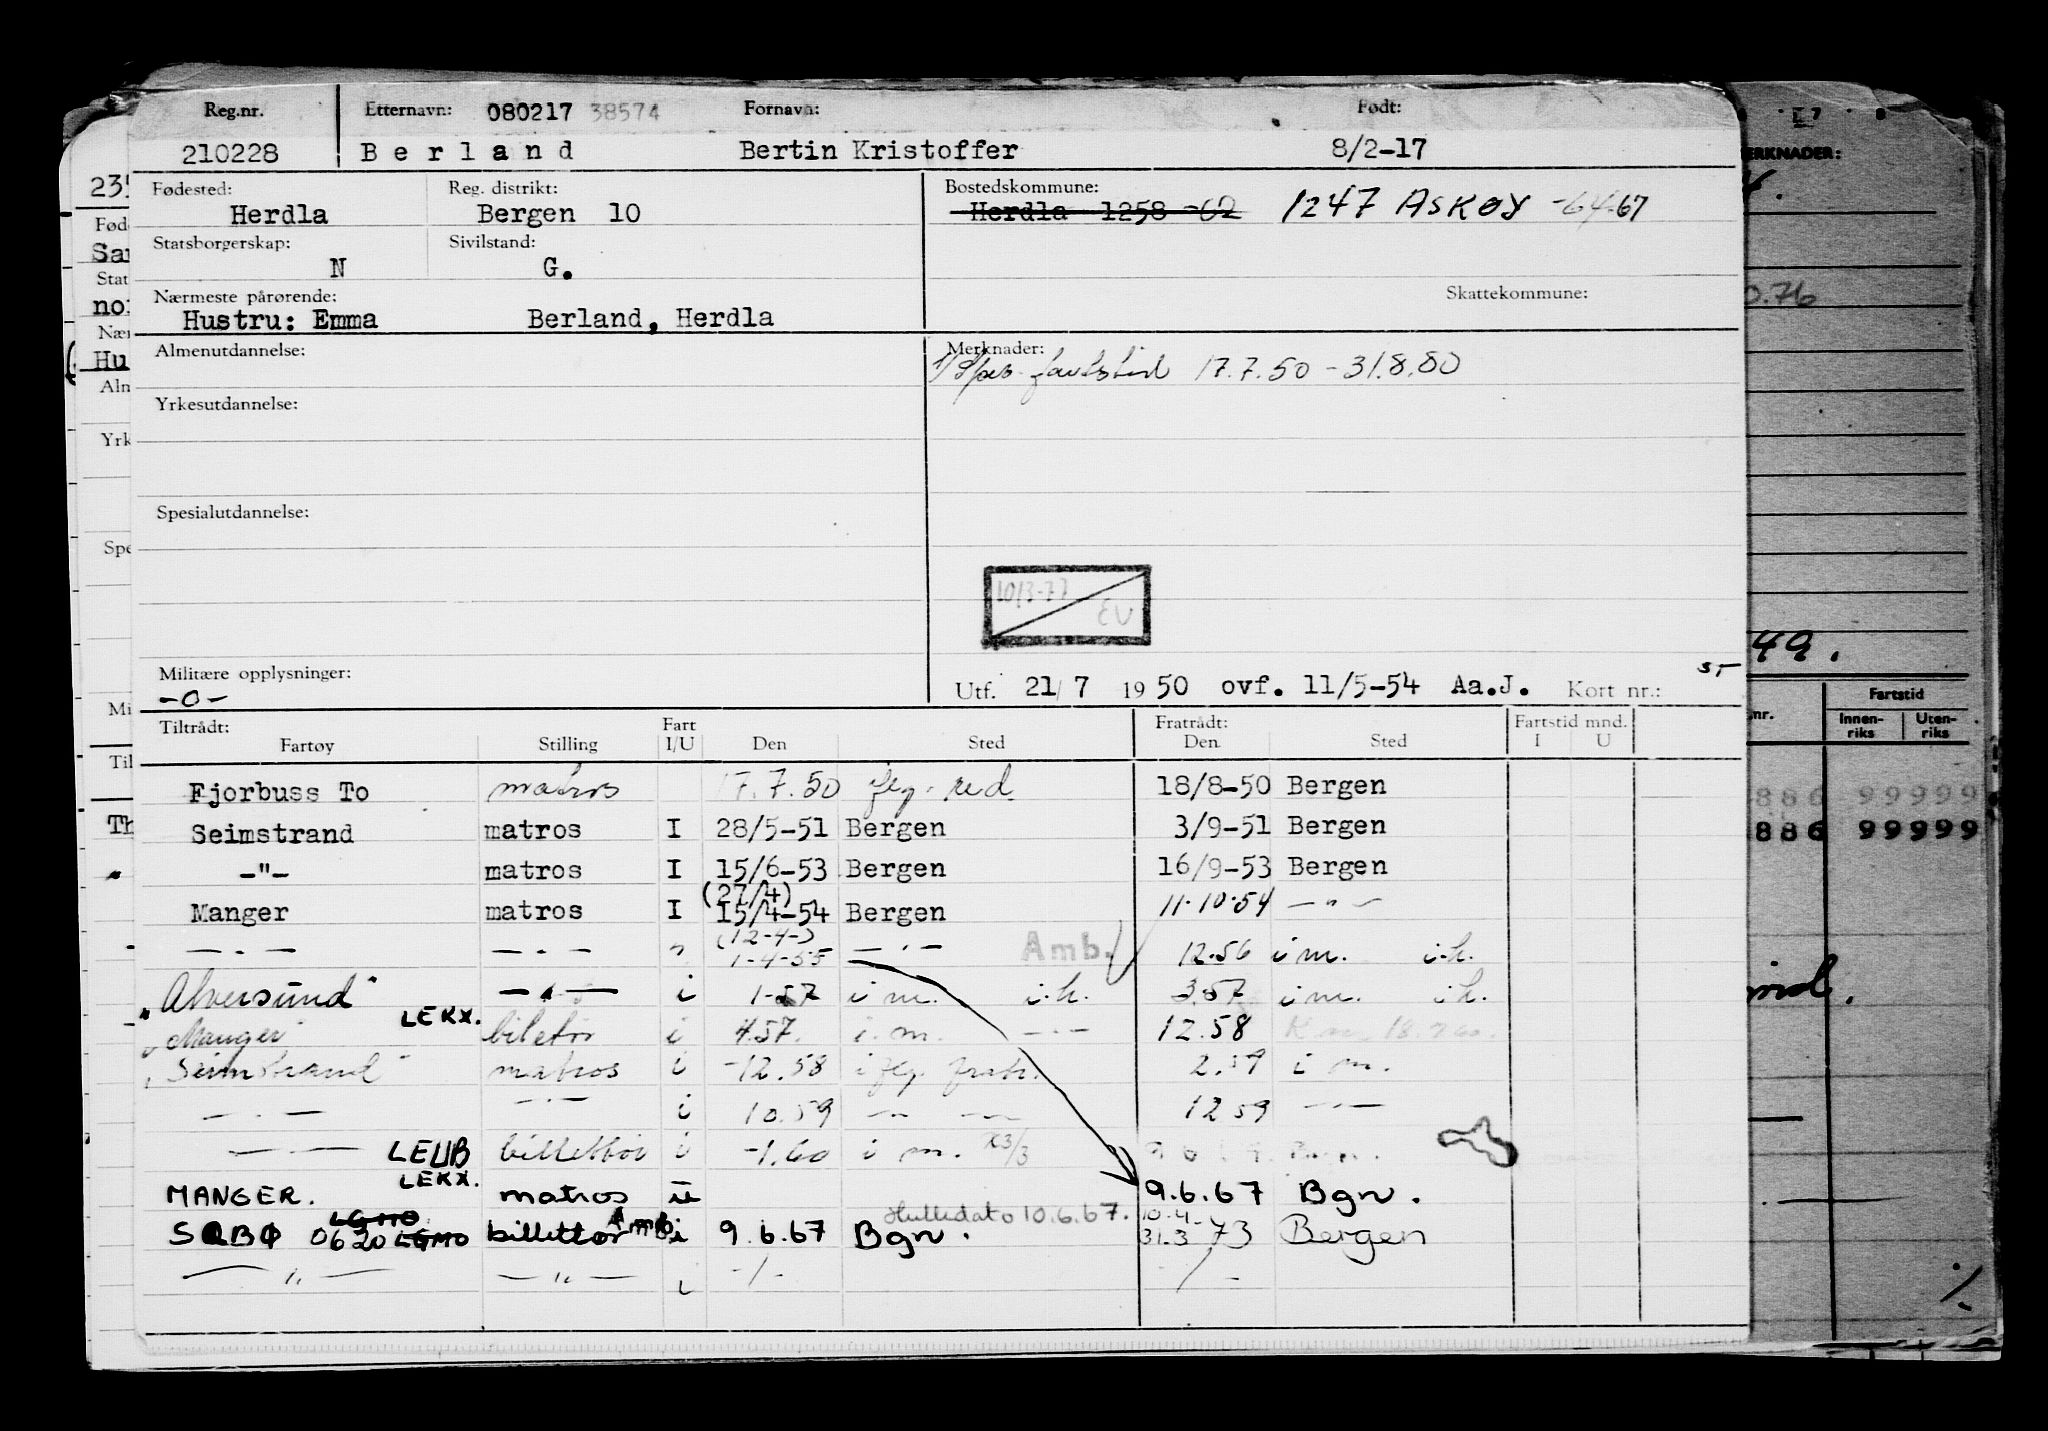 Reg.nr. Etternavn: 080217 38574 Fornavn: Født:
210228 Berland Bertin Kristoffer 8/2-17
Fødested: Reg. distrikt: Bostedskommune:
Herdla Bergen 10 Herdla 1258 -62 1247 ASKØY -64-67
Statsborgerskap: Sivilstand:
N G.
Nærmeste pårørende: Skattekommune:
Hustru: Emma Berland, Herdla
Almenutdannelse: Merknader:
17.7.50 - 31.8.80
Yrkesutdannelse:
Spesialutdannelse:
10/3-77 EU
Militære opplysninger:
-0- Utf. 21/7 1950 ovf. 11/5-54 Aa.J. Kort nr.:
Tiltrådt: Fart Fratrådt: Fartstid mnd.
Fartøy Stilling I/U Den Sted Den Sted I U
Fjorbuss To matros 17.7.50 18/8-50 Bergen
Seimstrand matros I 28/5-51 Bergen 3/9-51 Bergen
-"- matros I 15/6-53 Bergen 16/9-53 Bergen
(27/4)
Manger matros I 15/4-54 Bergen 11.10.54 -"-
(12-4-)
-"- -"- " 1-4-55 -"- Amb. 12.56 i m. i.h.
"Alversund" -"- i 1-57 i m. i.h. 3.57 i m. i h.
LEKX.
"Manger" biletør i 4.57. i. m. -"- 12.58
"Seimstrand" matros i -12.58 2.59 i m.
-"- -"- i 10.59 -"- 12 59 -"-
-"- LEUB billettør i -1.60 i m.
LEKX.
MANGER. matros i 9.6.67 Bgn.
LGMO Hulledato 10.6.67. 10.4
SÆBØ 0620 LGMO billettør Amb. i 9.6.67 Bgn. 31.3-73 Bergen
-"- -"- i -/- -/-
MERKNADER:
0.76
49.
Fartstid
nr. Innen-riks Uten-riks
886 99999
886 99999